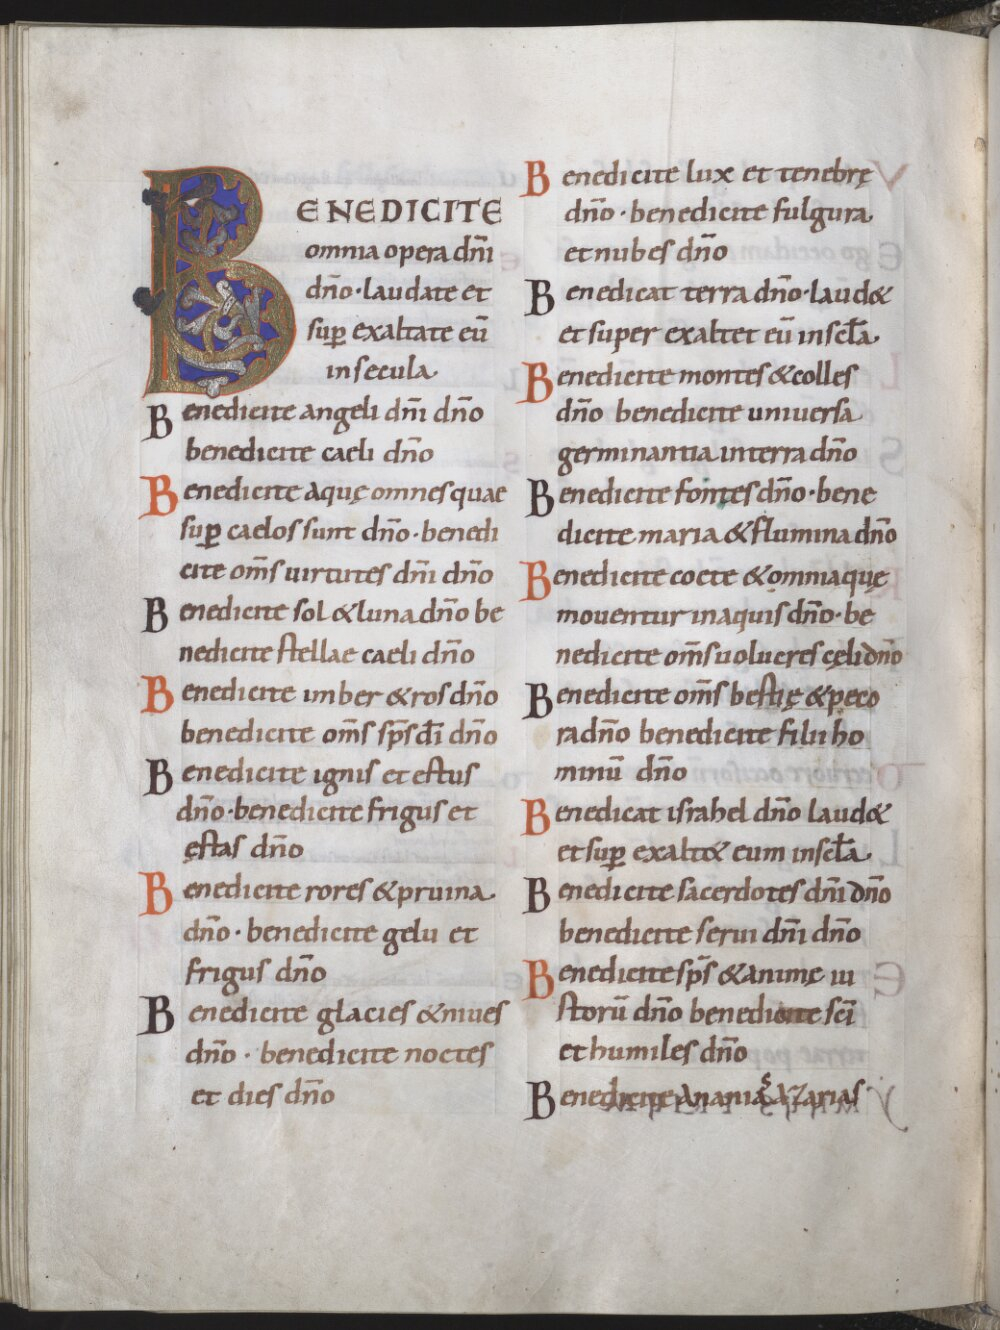 BENEDICITE
omnia opera dn̄i
dn̄o · laudate et
suꝑ exaltate eū
in secula
Benedicite angeli dn̄i dn̄o
benedicite caeli dn̄o
Benedicite aquę omnes quae
suꝑ caelos sunt dn̄o · benedi
cite om̄s uirtutes dn̄i dn̄o
Benedicite sol & luna dn̄o be
nedicite stellae caeli dn̄o
Benedicite imber & ros dn̄o
benedicite om̄s sp̄s dī dn̄o
Benedicite ignis et estus
dn̄o · benedicite frigus et
ęstas dn̄o
Benedicite rores & pruina
dn̄o · benedicite gelu et
frigus dn̄o
Benedicite glacies & niues
dn̄o · benedicite noctes
et dies dn̄o
Benedicite lux et tenebrę
dn̄o · benedicite fulgura
et nubes dn̄o
Benedicat terra dn̄o · laud&
et super exaltet eū in scl̄a
Benedicite montes & colles
dn̄o benedicite uniuersa
germinantia in terra dn̄o
Benedicite fontes dn̄o · bene
dicite maria & flumina dn̄o
Benedicite coete & omnia quę
mouentur in aquis dn̄o · be
nedicite om̄s uolucres cęli dn̄o
Benedicite om̄s bestię & peco
ra dn̄o benedicite filii ho
minū dn̄o
Benedicat israhel dn̄o laud&
et suꝑ exalt& eum in scl̄a
Benedicite sacerdotes dn̄i dn̄o
benedicite serui dn̄i dn̄o
Benedicite sp̄s & animę iu
storū dn̄o benedicite sc̄i
et humiles dn̄o
Benedicite anania azarias